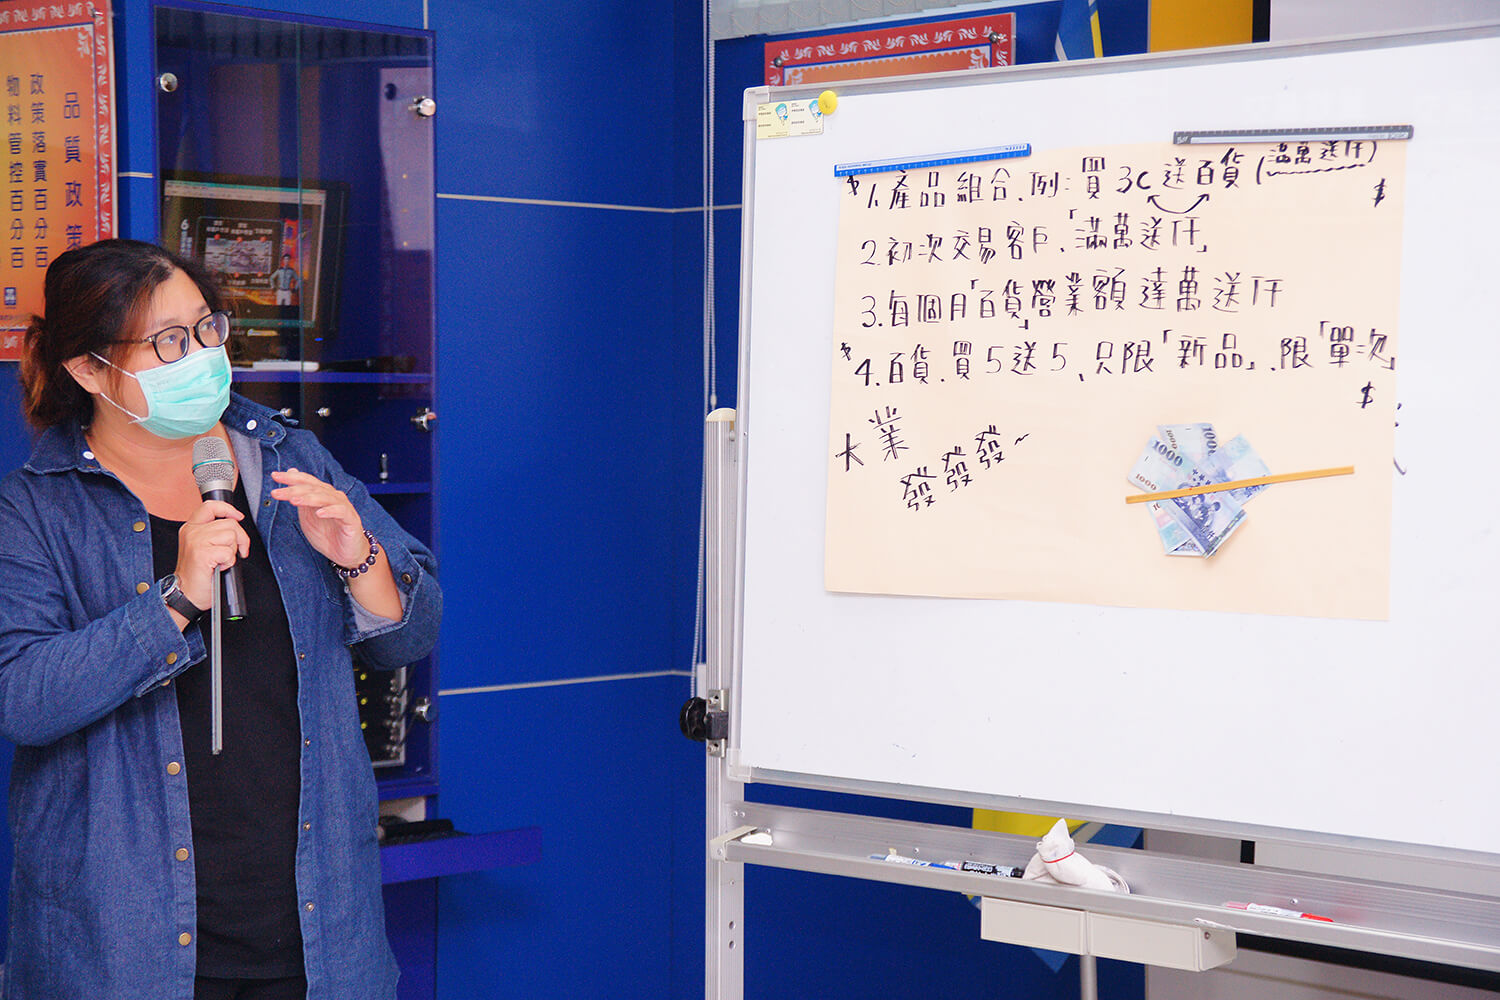 品質政策
政策落實百分百
物料管控百分百
1.產品組合、例:買3C送百貨(滿萬送仟)
2.初次交易客戶、「滿萬送仟」
3.每個月「百貨」營業額達萬送仟
4.百貨、買5送5、只限「新品」、限「單次」
大業
發發發~
$
$
$
$
1000
1000
1000